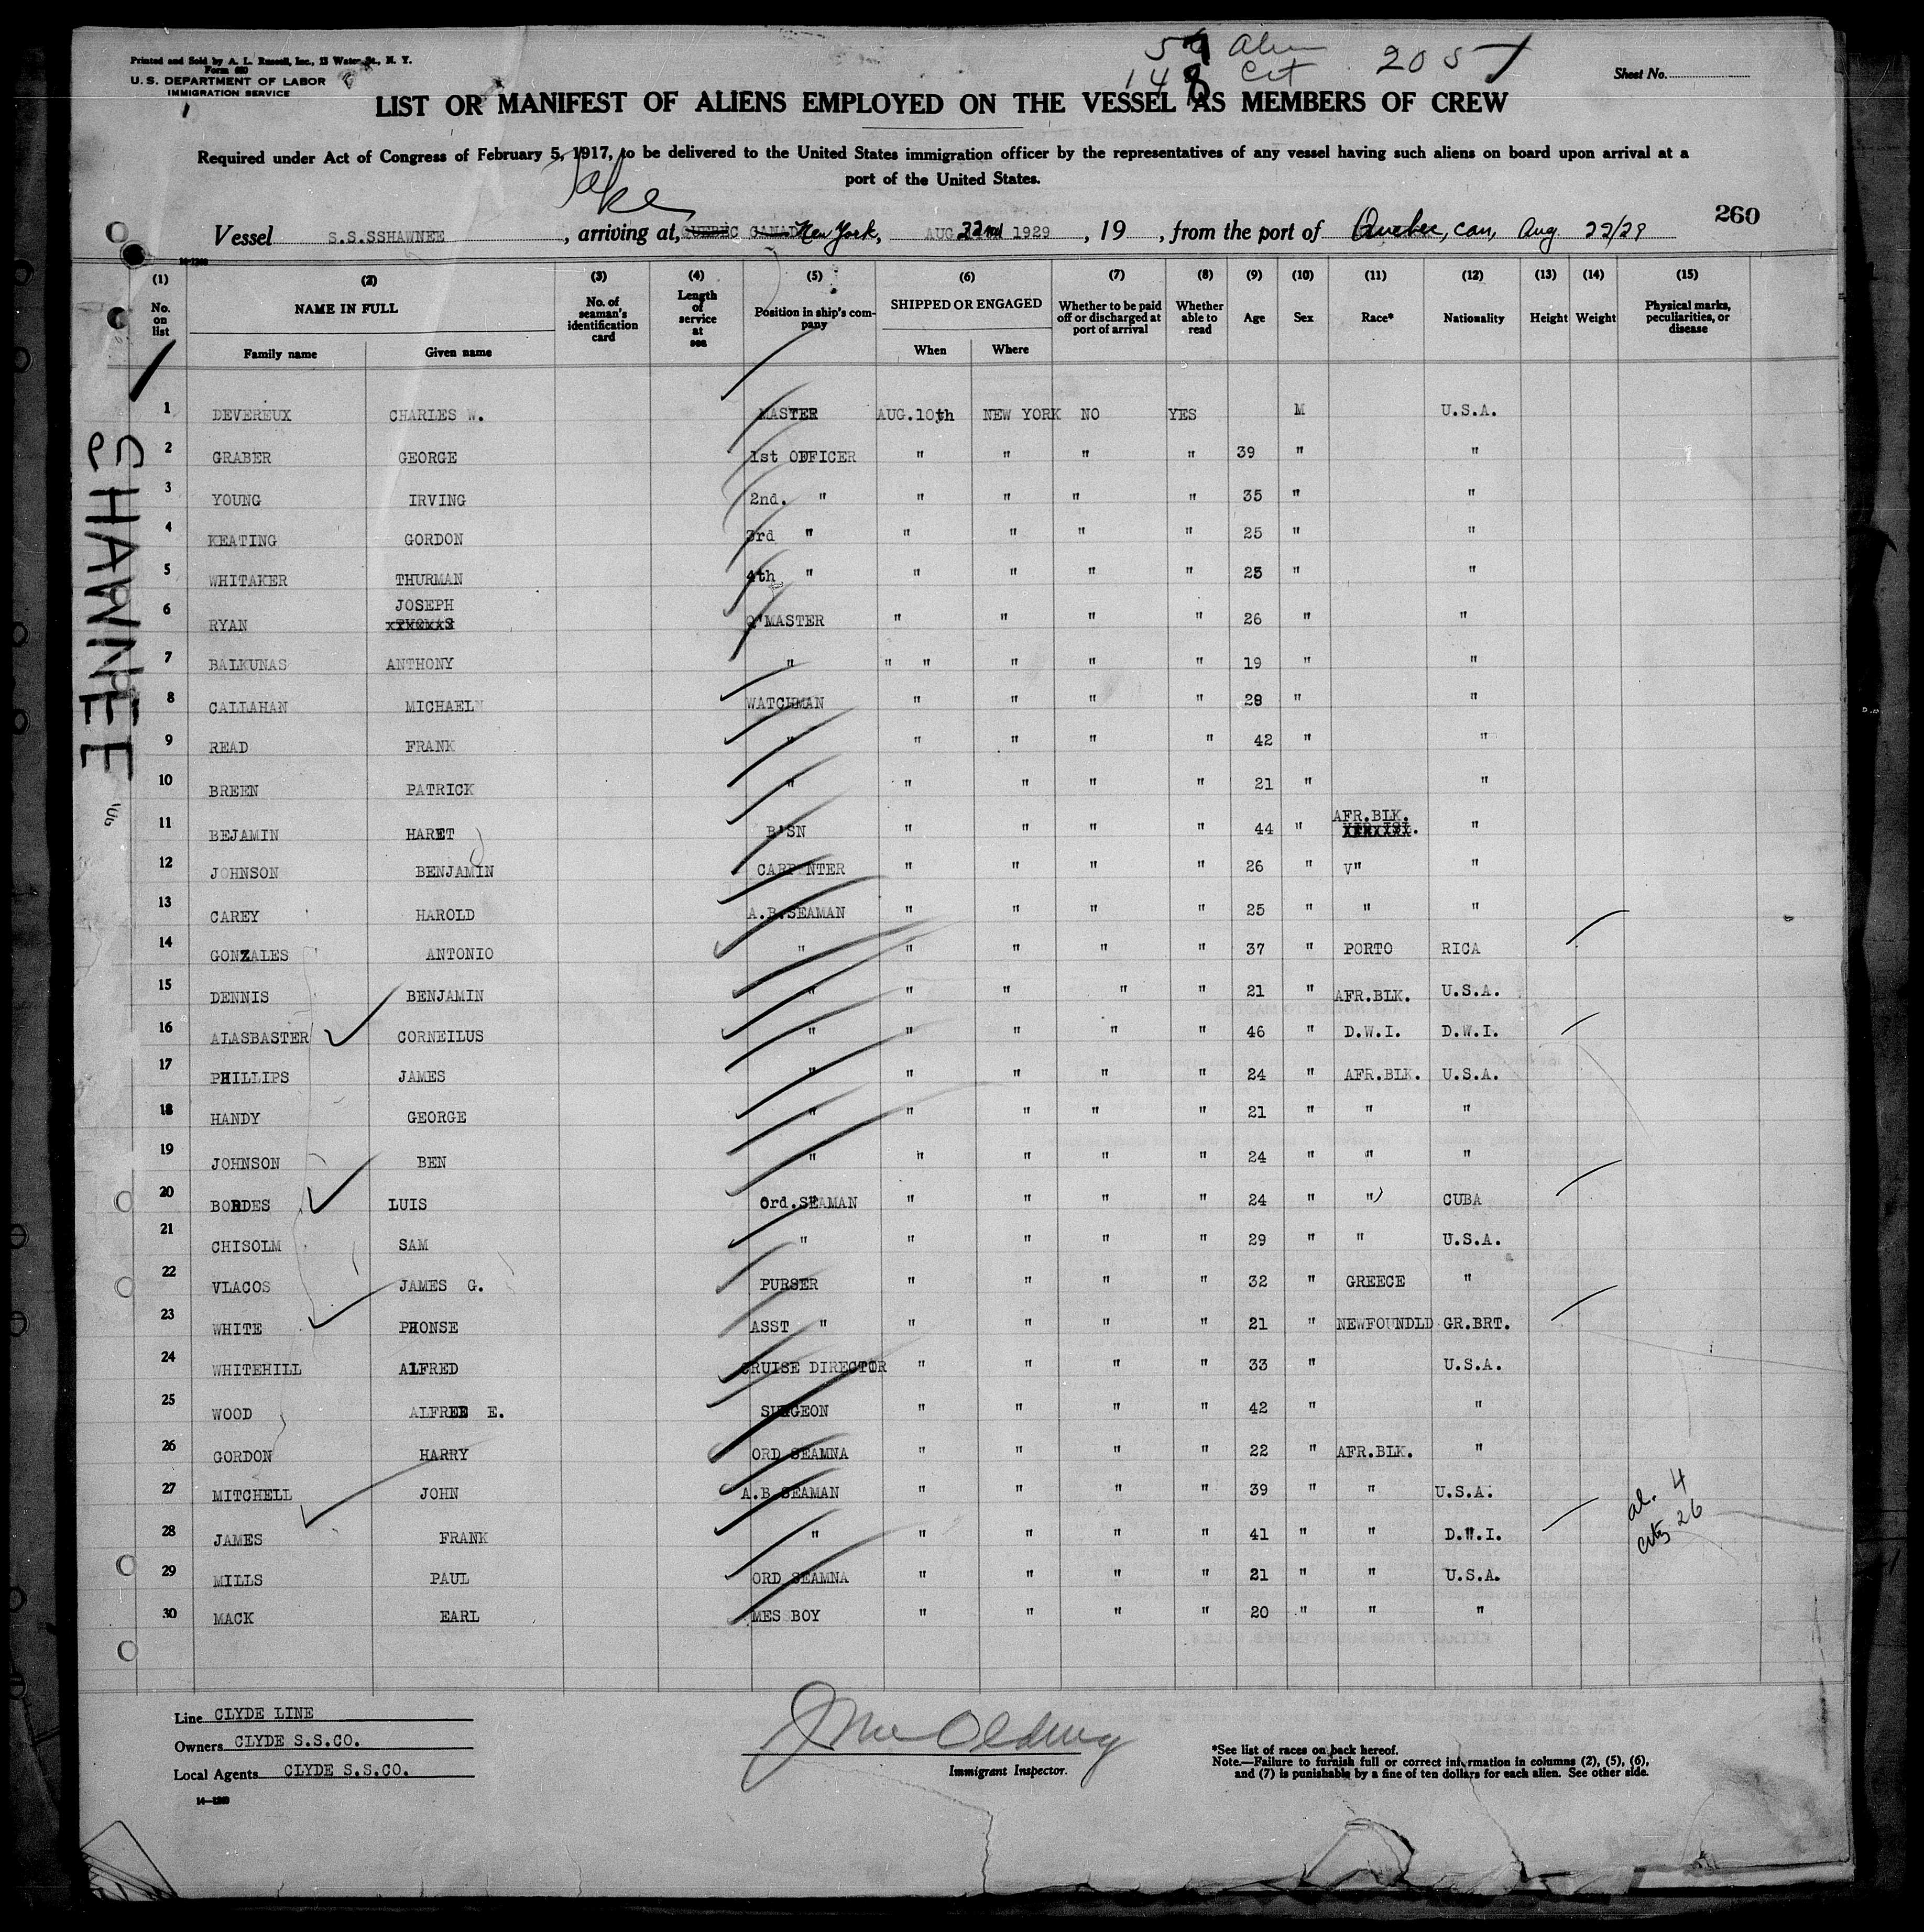 57 Alien
148 Cit 2057
Printed and Sold by A. L. Russell, Inc., 13 Water St., N. Y.
Form 680
U. S. DEPARTMENT OF LABOR
IMMIGRATION SERVICE
Sheet No.
LIST OR MANIFEST OF ALIENS EMPLOYED ON THE VESSEL AS MEMBERS OF CREW
Required under Act of Congress of February 5, 1917, to be delivered to the United States immigration officer by the representatives of any vessel having such aliens on board upon arrival at a
port of the United States.
260
Vessel S.S.SSHAWNEE , arriving at, QUEBEC CANADA New York, AUG 22nd 1929 , 19 , from the port of Quebec, Can, Aug 22/29
(1) (2) (3) (4) (5) (6) (7) (8) (9) (10) (11) (12) (13) (14) (15)
No. on list NAME IN FULL No. of seaman's identification card Length of service at sea Position in ship's company SHIPPED OR ENGAGED Whether to be paid off or discharged at port of arrival Whether able to read Age Sex Race* Nationality Height Weight Physical marks, peculiarities, or disease
Family name Given name When Where
1 DEVEREUX CHARLES W. MASTER AUG.10th NEW YORK NO YES M U.S.A.
2 GRABER GEORGE 1st OFFICER " " " " 39 " "
3 YOUNG IRVING 2nd. " " " " " 35 " "
4 KEATING GORDON 3rd " " " " " 25 " "
5 WHITAKER THURMAN 4th " " " " " 25 " "
JOSEPH
6 RYAN Q'MASTER " " " " 26 " "
7 BALKUNAS ANTHONY " " " " " " 19 " "
8 CALLAHAN MICHAEL WATCHMAN " " " " 28 " "
9 READ FRANK " " " " " 42 " "
10 BREEN PATRICK " " " " " 21 " "
AFR.BLK.
11 BEJAMIN HARET B'SN " " " " 44 " "
12 JOHNSON BENJAMIN CARPENTER " " " " 26 " V" "
13 CAREY HAROLD A.B.SEAMAN " " " " 25 " " "
14 GONZALES ANTONIO " " " " " 37 " PORTO RICA
15 DENNIS BENJAMIN " " " " " 21 " AFR.BLK. U.S.A.
16 ALASBASTER CORNEILUS " " " " " 46 " D.W.I. D.W.I.
17 PHILLIPS JAMES " " " " " 24 " AFR.BLK. U.S.A.
18 HANDY GEORGE " " " " " 21 " " "
19 JOHNSON BEN " " " " " 24 " " "
20 BORDES LUIS Ord.SEAMAN " " " " 24 " " CUBA
21 CHISOLM SAM " " " " " 29 " " U.S.A.
22 VLACOS JAMES G. PURSER " " " " 32 " GREECE "
23 WHITE PHONSE ASST " " " " " 21 " NEWFOUNDLD GR.BRT.
24 WHITEHILL ALFRED CRUISE DIRECTOR " " " " 33 " U.S.A.
25 WOOD ALFRED E. SURGEON " " " " 42 " "
26 GORDON HARRY ORD SEAMNA " " " " 22 " AFR.BLK. "
27 MITCHELL JOHN A.B SEAMAN " " " " 39 " " U.S.A.
28 JAMES FRANK " " " " " 41 " " D.W.I.
29 MILLS PAUL ORD SEAMNA " " " " 21 " " U.S.A.
30 MACK EARL MES BOY " " " " 20 " " "
al. 4
city 26
SHAWNEE
Line CLYDE LINE
Owners CLYDE S.S.CO.
Local Agents CLYDE S.S.CO.
14—1269
Immigrant Inspector.
*See list of races on back hereof.
Note.—Failure to furnish full or correct information in columns (2), (5), (6),
and (7) is punishable by a fine of ten dollars for each alien. See other side.